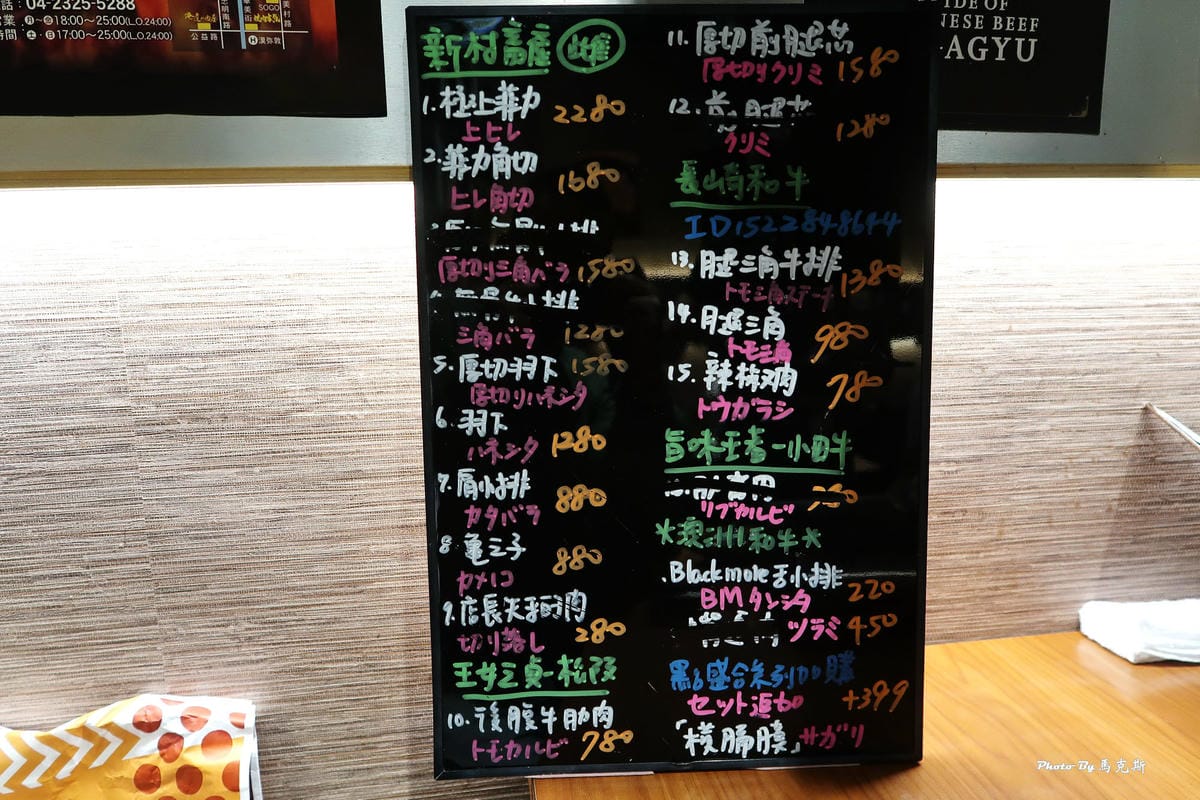 話：04-2325-5288
營業 18:00~25:00(L.O.24:00)
時間：17:00~25:00(L.O.24:00)
公益路
SOGO
漢弥敦
IDE OF
NESE BEEF
AGYU
新村畜產 雌
1.極上菲力 2280
上ヒレ
2.菲力角切 1680
ヒレ角切
厚切り三角バラ 1580
三角バラ 1280
5.厚切羽下 1580
厚切りハネシタ
6.羽下
ハネシタ 1280
7.肩小排 880
カタバラ
8.亀之子 880
カメノコ
9.店長 肉
切り落し 280
松阪
10.後腹牛肋肉
トモカルビ 780
11.厚切前腿芯
厚切りクリミ 1580
12.前腿芯 1280
クリミ
長崎和牛
ID1522848644
13.腿三角牛排 1380
トモ三角ステーキ
14.腿三角 980
トモ三角
15.辣椒肉 780
トウガラシ
旨味王者-小田牛
リブカルビ
*澳洲和牛*
Blackmore舌小排 220
BMタンシタ
ツラミ 450
盛合系列加購
セット追加 +399
「横膈膜」サガリ
Photo By 馬克斯